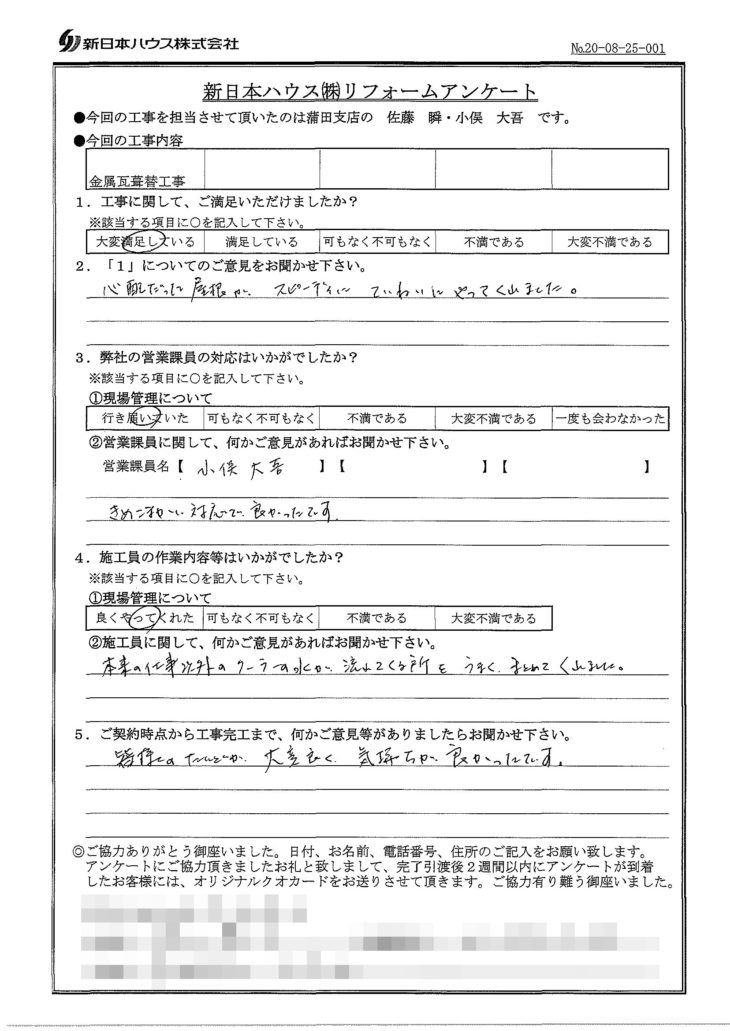 新日本ハウス株式会社
№20-08-25-001
新日本ハウス㈱リフォームアンケート
●今回の工事を担当させて頂いたのは蒲田支店の 佐藤 瞬・小俣 大吾 です。
●今回の工事内容
金属瓦葺替工事
1．工事に関して、ご満足いただけましたか？
※該当する項目に○を記入して下さい。
大変満足している 満足している 可もなく不可もなく 不満である 大変不満である
2．「1」についてのご意見をお聞かせ下さい。
心配だった屋根が、スピーディに ていねいに やってくれました。
3．弊社の営業課員の対応はいかがでしたか？
※該当する項目に○を記入して下さい。
①現場管理について
行き届いていた 可もなく不可もなく 不満である 大変不満である 一度も会わなかった
②営業課員に関して、何かご意見があればお聞かせ下さい。
営業課員名【 小俣 大吾 】【 】【 】
きめこまかい対応で、良かったです。
4．施工員の作業内容等はいかがでしたか？
※該当する項目に○を記入して下さい。
①現場管理について
良くやってくれた 可もなく不可もなく 不満である 大変不満である
②施工員に関して、何かご意見があればお聞かせ下さい。
本来の仕事以外のクーラーの水が、流れてくる所を うまく、まとめてくれました。
5．ご契約時点から工事完工まで、何かご意見等がありましたらお聞かせ下さい。
皆様の 大変良く、気持ちが、良かったです。
◎ご協力ありがとう御座いました。日付、お名前、電話番号、住所のご記入をお願い致します。
アンケートにご協力頂きましたお礼と致しまして、完了引渡後２週間以内にアンケートが到着
したお客様には、オリジナルクオカードをお送りさせて頂きます。ご協力有り難う御座いました。